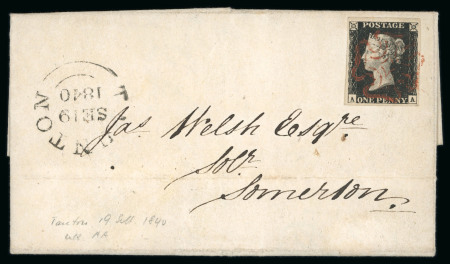 POSTAGE
A ONE PENNY A
TAUNTON
SE 19
1840
Jas Welsh Esqre
Solr
Somerton
Taunton 19 Sept. 1840